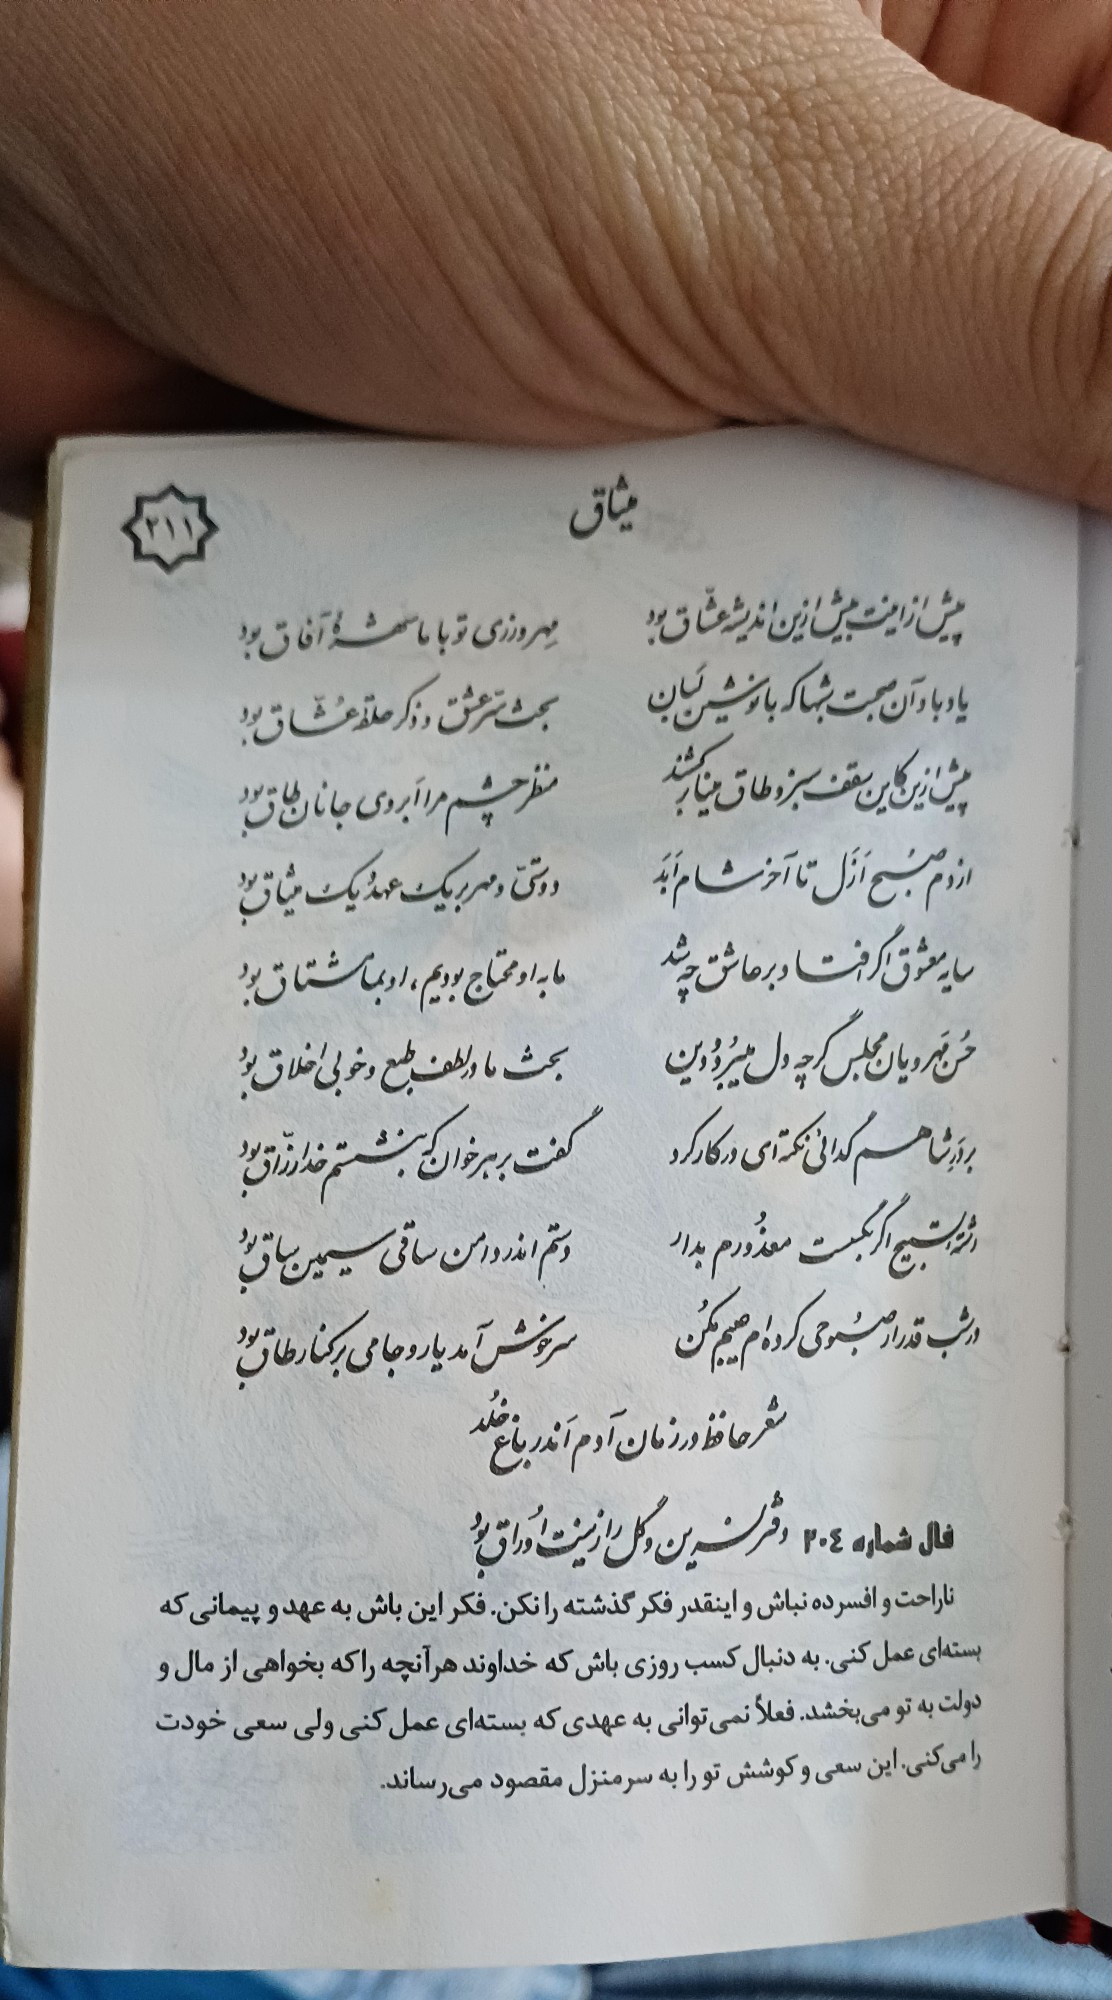 میثاق
۲۱۱
پیش از اینت بیش ازین اندیشه عشّاق بود مهرورزی تو با ما شهرهٔ آفاق بود
یاد باد آن صحبت شبها که با نوشین لَبان بحث سرّ عشق و ذکر حلقه عُشّاق بود
پیش ازین کاین سقف سبز و طاق مینا برکشند منظر چشم مرا اَبروی جانان طاق بود
از دم صُبح اَزَل تا آخر شام اَبَد دوستّی و مهر بر یک عهد و یک میثاق بود
سایه معشوق اگر افتاد بر عاشق چه شد ما به او محتاج بودیم، او بما مشتاق بود
حُسن مَهرویان مجلس گرچه دل میبَرد و دین بحث ما در لطف طبع و خوبی اخلاق بود
بر دَرِ شاهم گدائی نکته‌ای در کار کرد گفت بر هر خوان که بنشستم خدا رزّاق بود
رشته تسبیح اگر بگسست معذُورم بدار دستم اندر دامن ساقی سیمین ساق بود
در شب قدر ار صبُوحی کرده‌ام عیبم مکُن سرخوش آمد یار و جامی بر کنار طاق بود
شعر حافظ در زمان آدم اَندر باغ خُلد
دفتر نسرین و گل را زینت اَوراق بود
فال شماره ۲۰٤
ناراحت و افسرده نباش و اینقدر فکر گذشته را نکن. فکر این باش به عهد و پیمانی که
بسته‌ای عمل کنی. به دنبال کسب روزی باش که خداوند هرآنچه را که بخواهی از مال و
دولت به تو می‌بخشد. فعلاً نمی‌توانی به عهدی که بسته‌ای عمل کنی ولی سعی خودت
را می‌کنی. این سعی و کوشش تو را به سرمنزل مقصود می‌رساند.